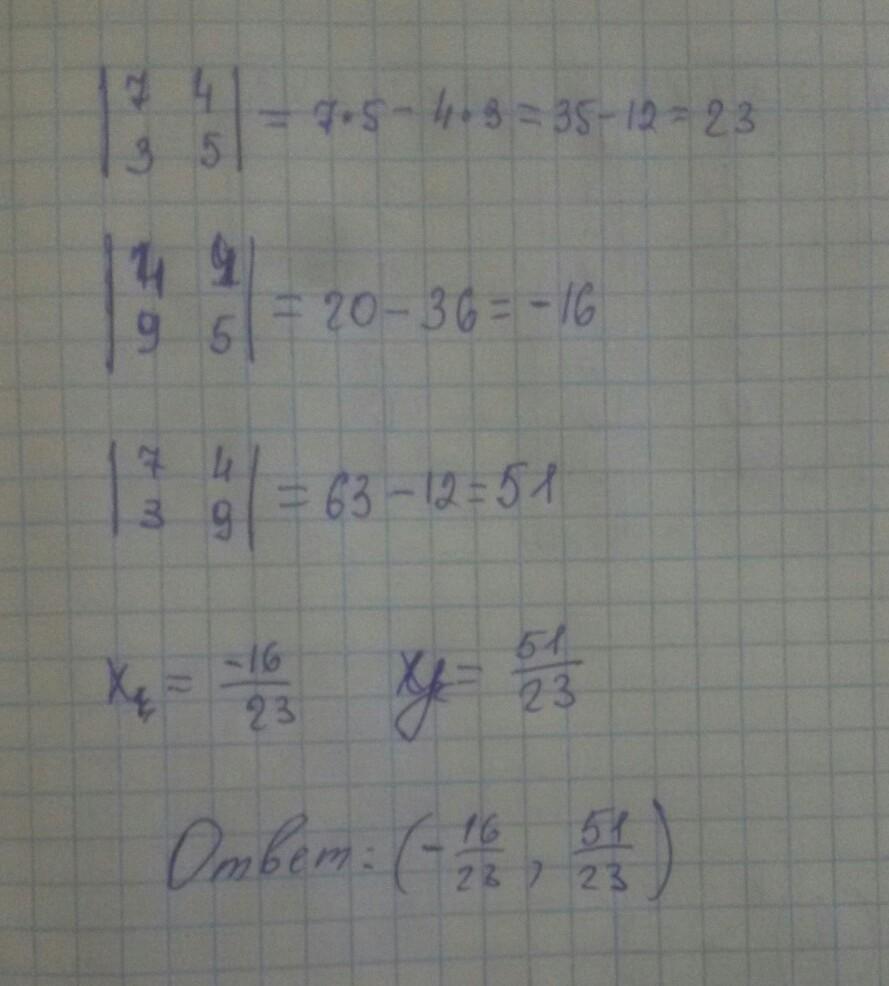 | 7 4 |
| 3 5 | = 7·5 - 4·3 = 35 - 12 = 23
| 4 4 |
| 9 5 | = 20 - 36 = -16
| 7 4 |
| 3 9 | = 63 - 12 = 51
x = -16/23 y = 51/23
Ответ: (-16/23, 51/23)